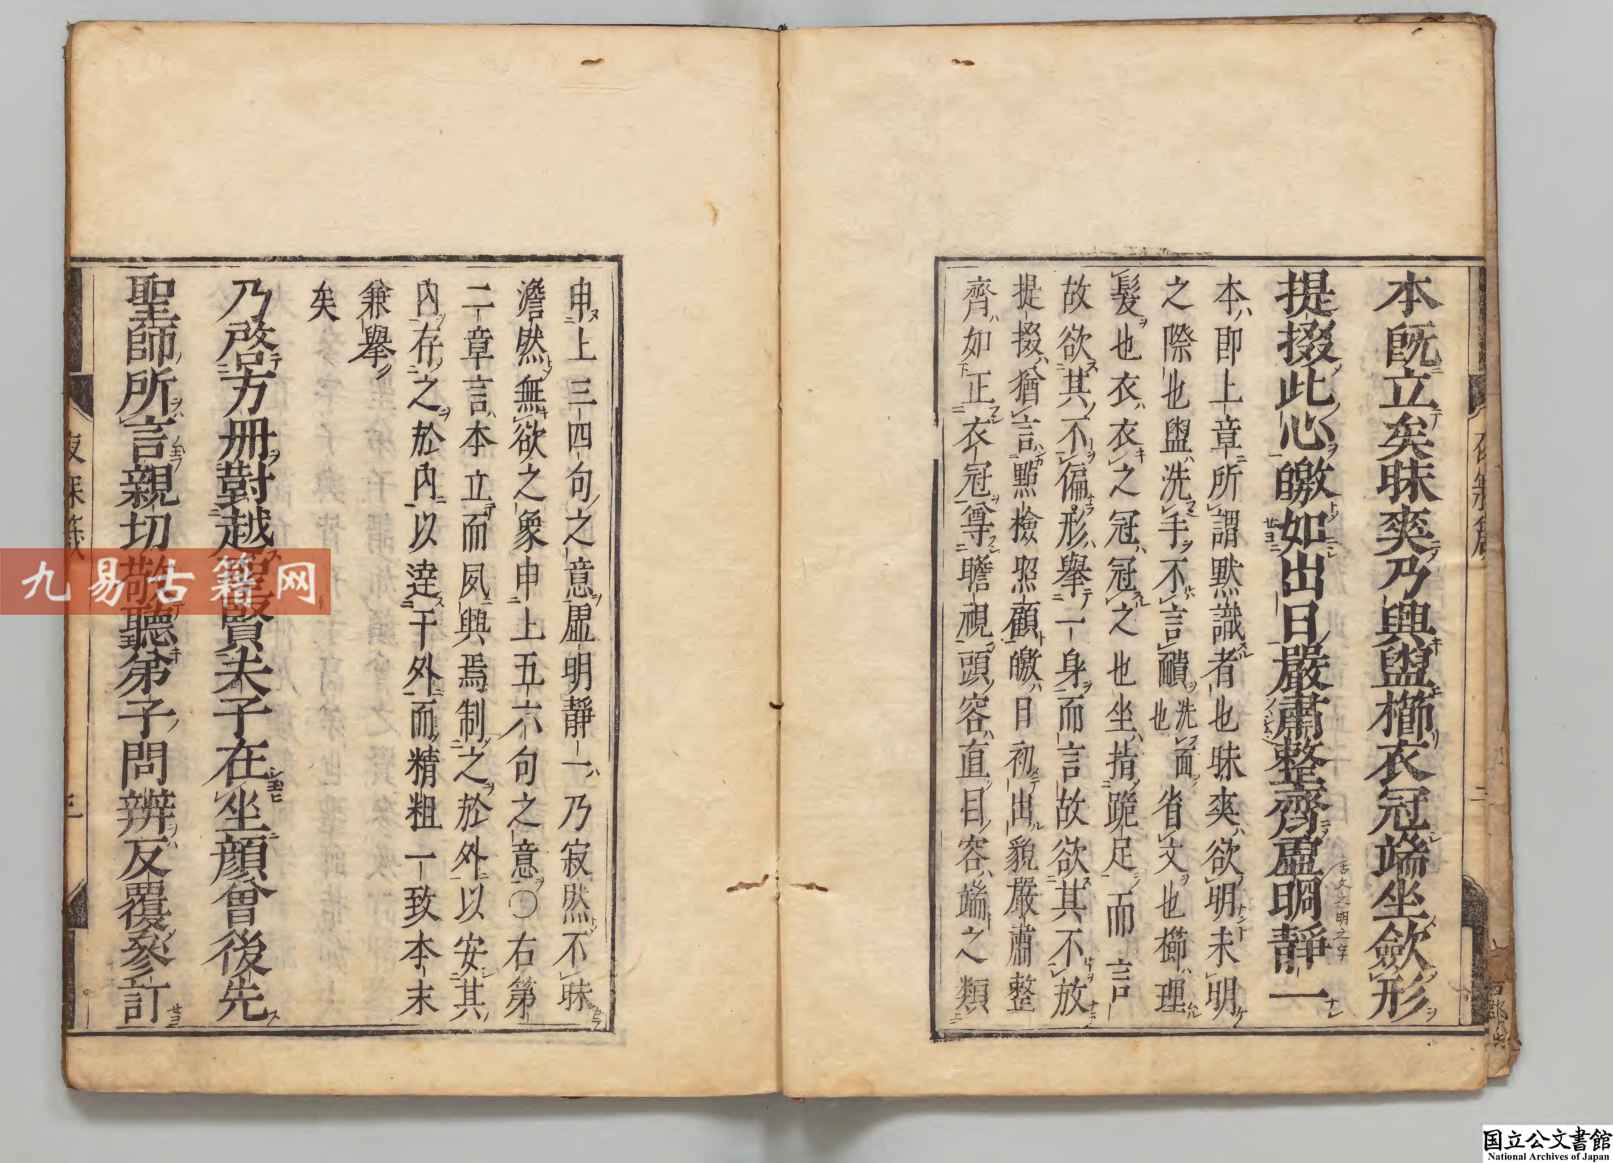 本既立矣昧爽乃興盥櫛衣冠端坐歛形
提掇此心皦如出日嚴肅整齊虛明靜一
本即上章所謂默識者也昧爽欲明未明
之際也盥洗手不言靧洗面也省文也櫛理
髮也衣衣之冠冠之也坐指跪足而言
故欲其不偏形舉一身而言故欲其不放
提掇猶言點檢照顧皦日初出貌嚴肅整
齊如正衣冠尊瞻視頭容直目容端之類
申上三四句之意虛明靜一乃寂然不昧
澹然無欲之象申上五六句之意〇右第
二章言本立而夙興焉制之於外以安其
內存之於內以達于外而精粗一致本末
兼舉
矣
乃啓方冊對越聖賢夫子在坐顔曾後先
聖師所言親切敬聽弟子問辨反覆參訂
二
三
九易古籍网
国立公文書館
National Archives of Japan